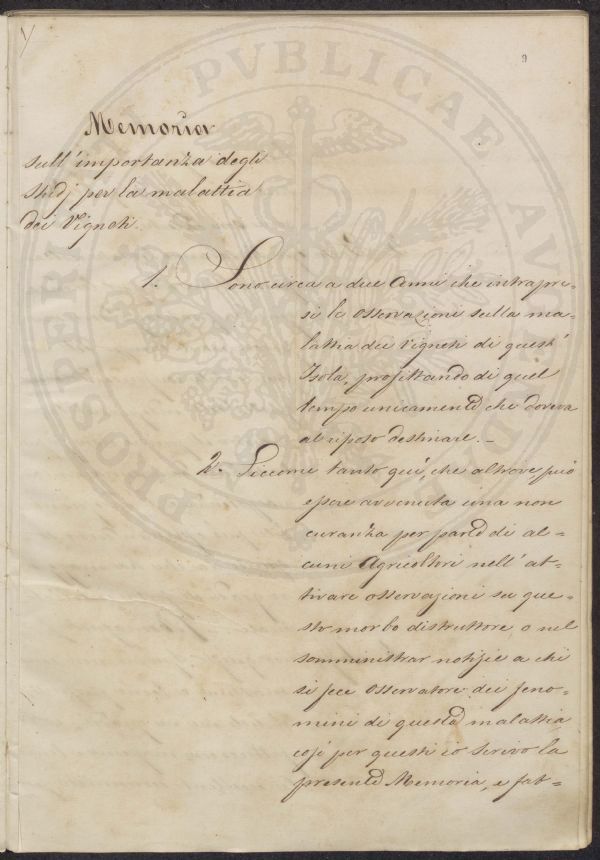 9
Memoria
sull'importanza degli
Studj per la malattia
dei Vigneti.
1. Sono circa a due Anni che intrapre-
si le osservazioni sulla ma-
lattia dei Vigneti di quest'
Isola, profittando di quel
tempo unicamente che doveva
al riposo destinare._
2. Siccome tanto quì, che altrove, può
essere avvenuta una non
curanza per parte di al=
cuni Agricoltori nell'at-
tivare osservazioni su que-
sto morbo distruttore, o nel
somministrar notizie a chi
si fece Osservatore dei feno-
mini di questa malattia
così per questi io scrivo la
presente Memoria, e fat=
PROSPERITATI PVBLICAE AVGENDAE